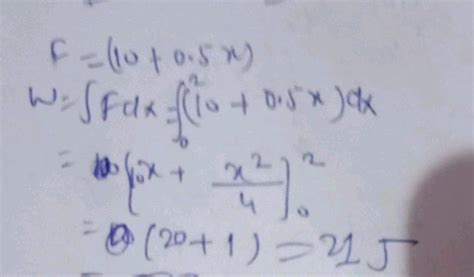 F = (10 + 0.5x)
W = ∫Fdx = ∫₀²(10 + 0.5x)dx
= [10x + x²/4]₀²
= (20 + 1) = 21 J